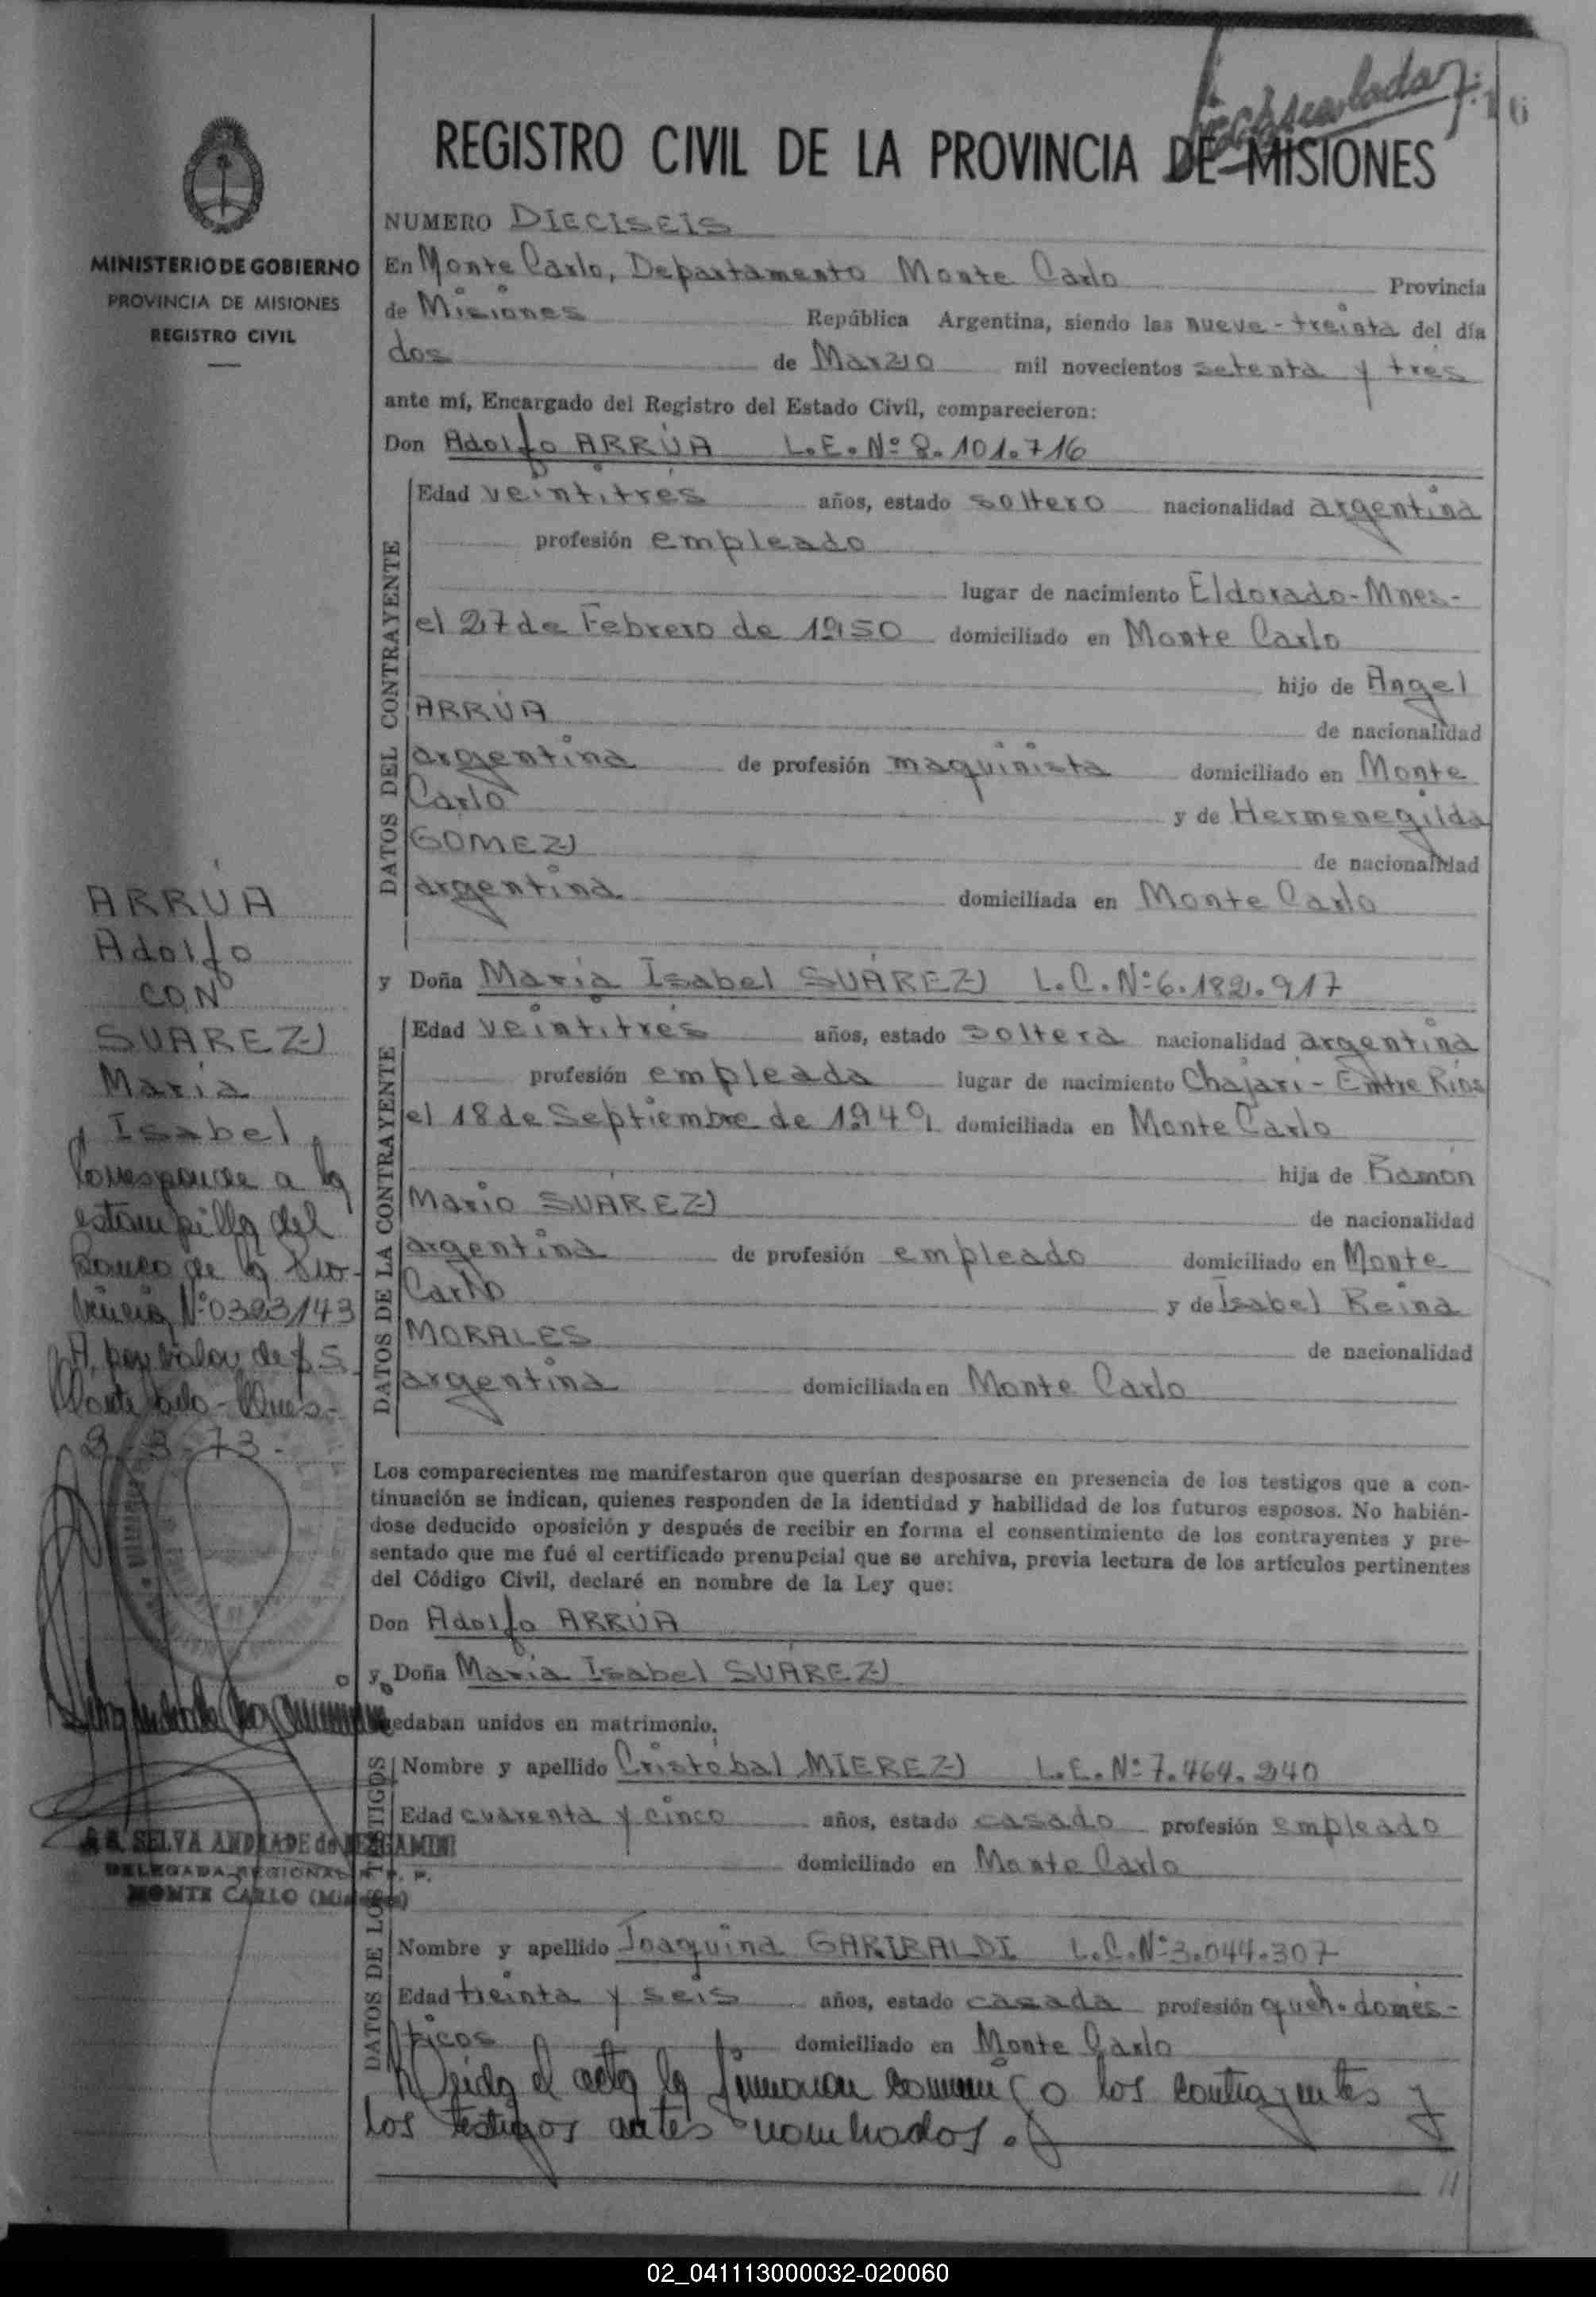 REGISTRO CIVIL DE LA PROVINCIA DE MISIONES
MINISTERIO DE GOBIERNO
PROVINCIA DE MISIONES
REGISTRO CIVIL
NUMERO DIECISEIS
En Monte Carlo, Departamento Monte Carlo Provincia
de Misiones República Argentina, siendo las nueve-treinta del día
dos de Marzo mil novecientos setenta y tres
ante mí, Encargado del Registro del Estado Civil, comparecieron:
Don Adolfo ARRÚA L.E.Nº 8.101.716
DATOS DEL CONTRAYENTE
Edad veintitrés años, estado soltero nacionalidad argentina
profesión empleado
lugar de nacimiento Eldorado-Mnes-
el 27 de Febrero de 1950 domiciliado en Monte Carlo
hijo de Angel
ARRÚA de nacionalidad
argentina de profesión maquinista domiciliado en Monte
Carlo y de Hermenegilda
GOMEZ de nacionalidad
argentina domiciliada en Monte Carlo
ARRÚA
Adolfo
CON
SUAREZ
María
Isabel
y Doña María Isabel SUÁREZ L.C.Nº 6.182.917
DATOS DE LA CONTRAYENTE
Edad veintitrés años, estado soltera nacionalidad argentina
profesión empleada lugar de nacimiento Chajarí - Entre Ríos
el 18 de Septiembre de 1949 domiciliada en Monte Carlo
hija de Ramón
Mario SUÁREZ de nacionalidad
argentina de profesión empleado domiciliado en Monte
Carlo y de Isabel Reina
MORALES de nacionalidad
argentina domiciliada en Monte Carlo
Corresponde a la
estampilla del
Banco de la Pro-
vincia Nº 0323143
A, por valor de $ 5
Monte Carlo - Mnes-
2-3-73.
Los comparecientes me manifestaron que querían desposarse en presencia de los testigos que a con-
tinuación se indican, quienes responden de la identidad y habilidad de los futuros esposos. No habién-
dose deducido oposición y después de recibir en forma el consentimiento de los contrayentes y pre-
sentado que me fué el certificado prenupcial que se archiva, previa lectura de los artículos pertinentes
del Código Civil, declaré en nombre de la Ley que:
Don Adolfo ARRÚA
y Doña María Isabel SUÁREZ
quedaban unidos en matrimonio.
DATOS DE LOS TESTIGOS
Nombre y apellido Cristóbal MIEREZ L.E.Nº 7.464.240
Edad cuarenta y cinco años, estado casado profesión empleado
domiciliado en Monte Carlo
SELVA ANDRADE de BERGAMINI
DELEGADA REGIONAL R. P.
MONTE CARLO (Misiones)
Nombre y apellido Joaquina GARIBALDI L.C.Nº 3.044.307
Edad treinta y seis años, estado casada profesión queh. domés-
ticos domiciliado en Monte Carlo
Leida el acta la firmaron conmigo los contrayentes y
los testigos antes nombrados.
02_041113000032-020060